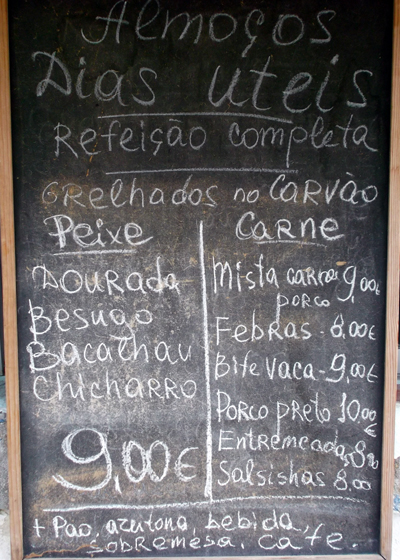 Almoços
Dias uteis
Refeição completa
Grelhados no Carvão
Peixe
Dourada
Besugo
Bacalhau
Chicharro
9,00€
Carne
Mista carne 9,00€
porco
Febras - 8,00€
Bife Vaca - 9,00€
Porco preto 10,00€
Entremeadas 8,00
Salsishas 8,00
+ Pao, azeitona, bebida,
sobremesa, cafe.